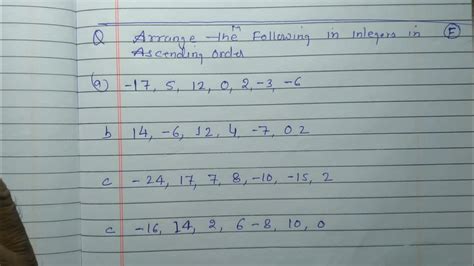 m
Q Arrange the Following in integers in (F)
Ascending order
(a) -17, 5, 12, 0, 2, -3, -6
b 14, -6, 12, 4, -7, 0 2
c - 24, 17, 7, 8, -10, -15, 2
c -16, 14, 2, 6 -8, 10, 0